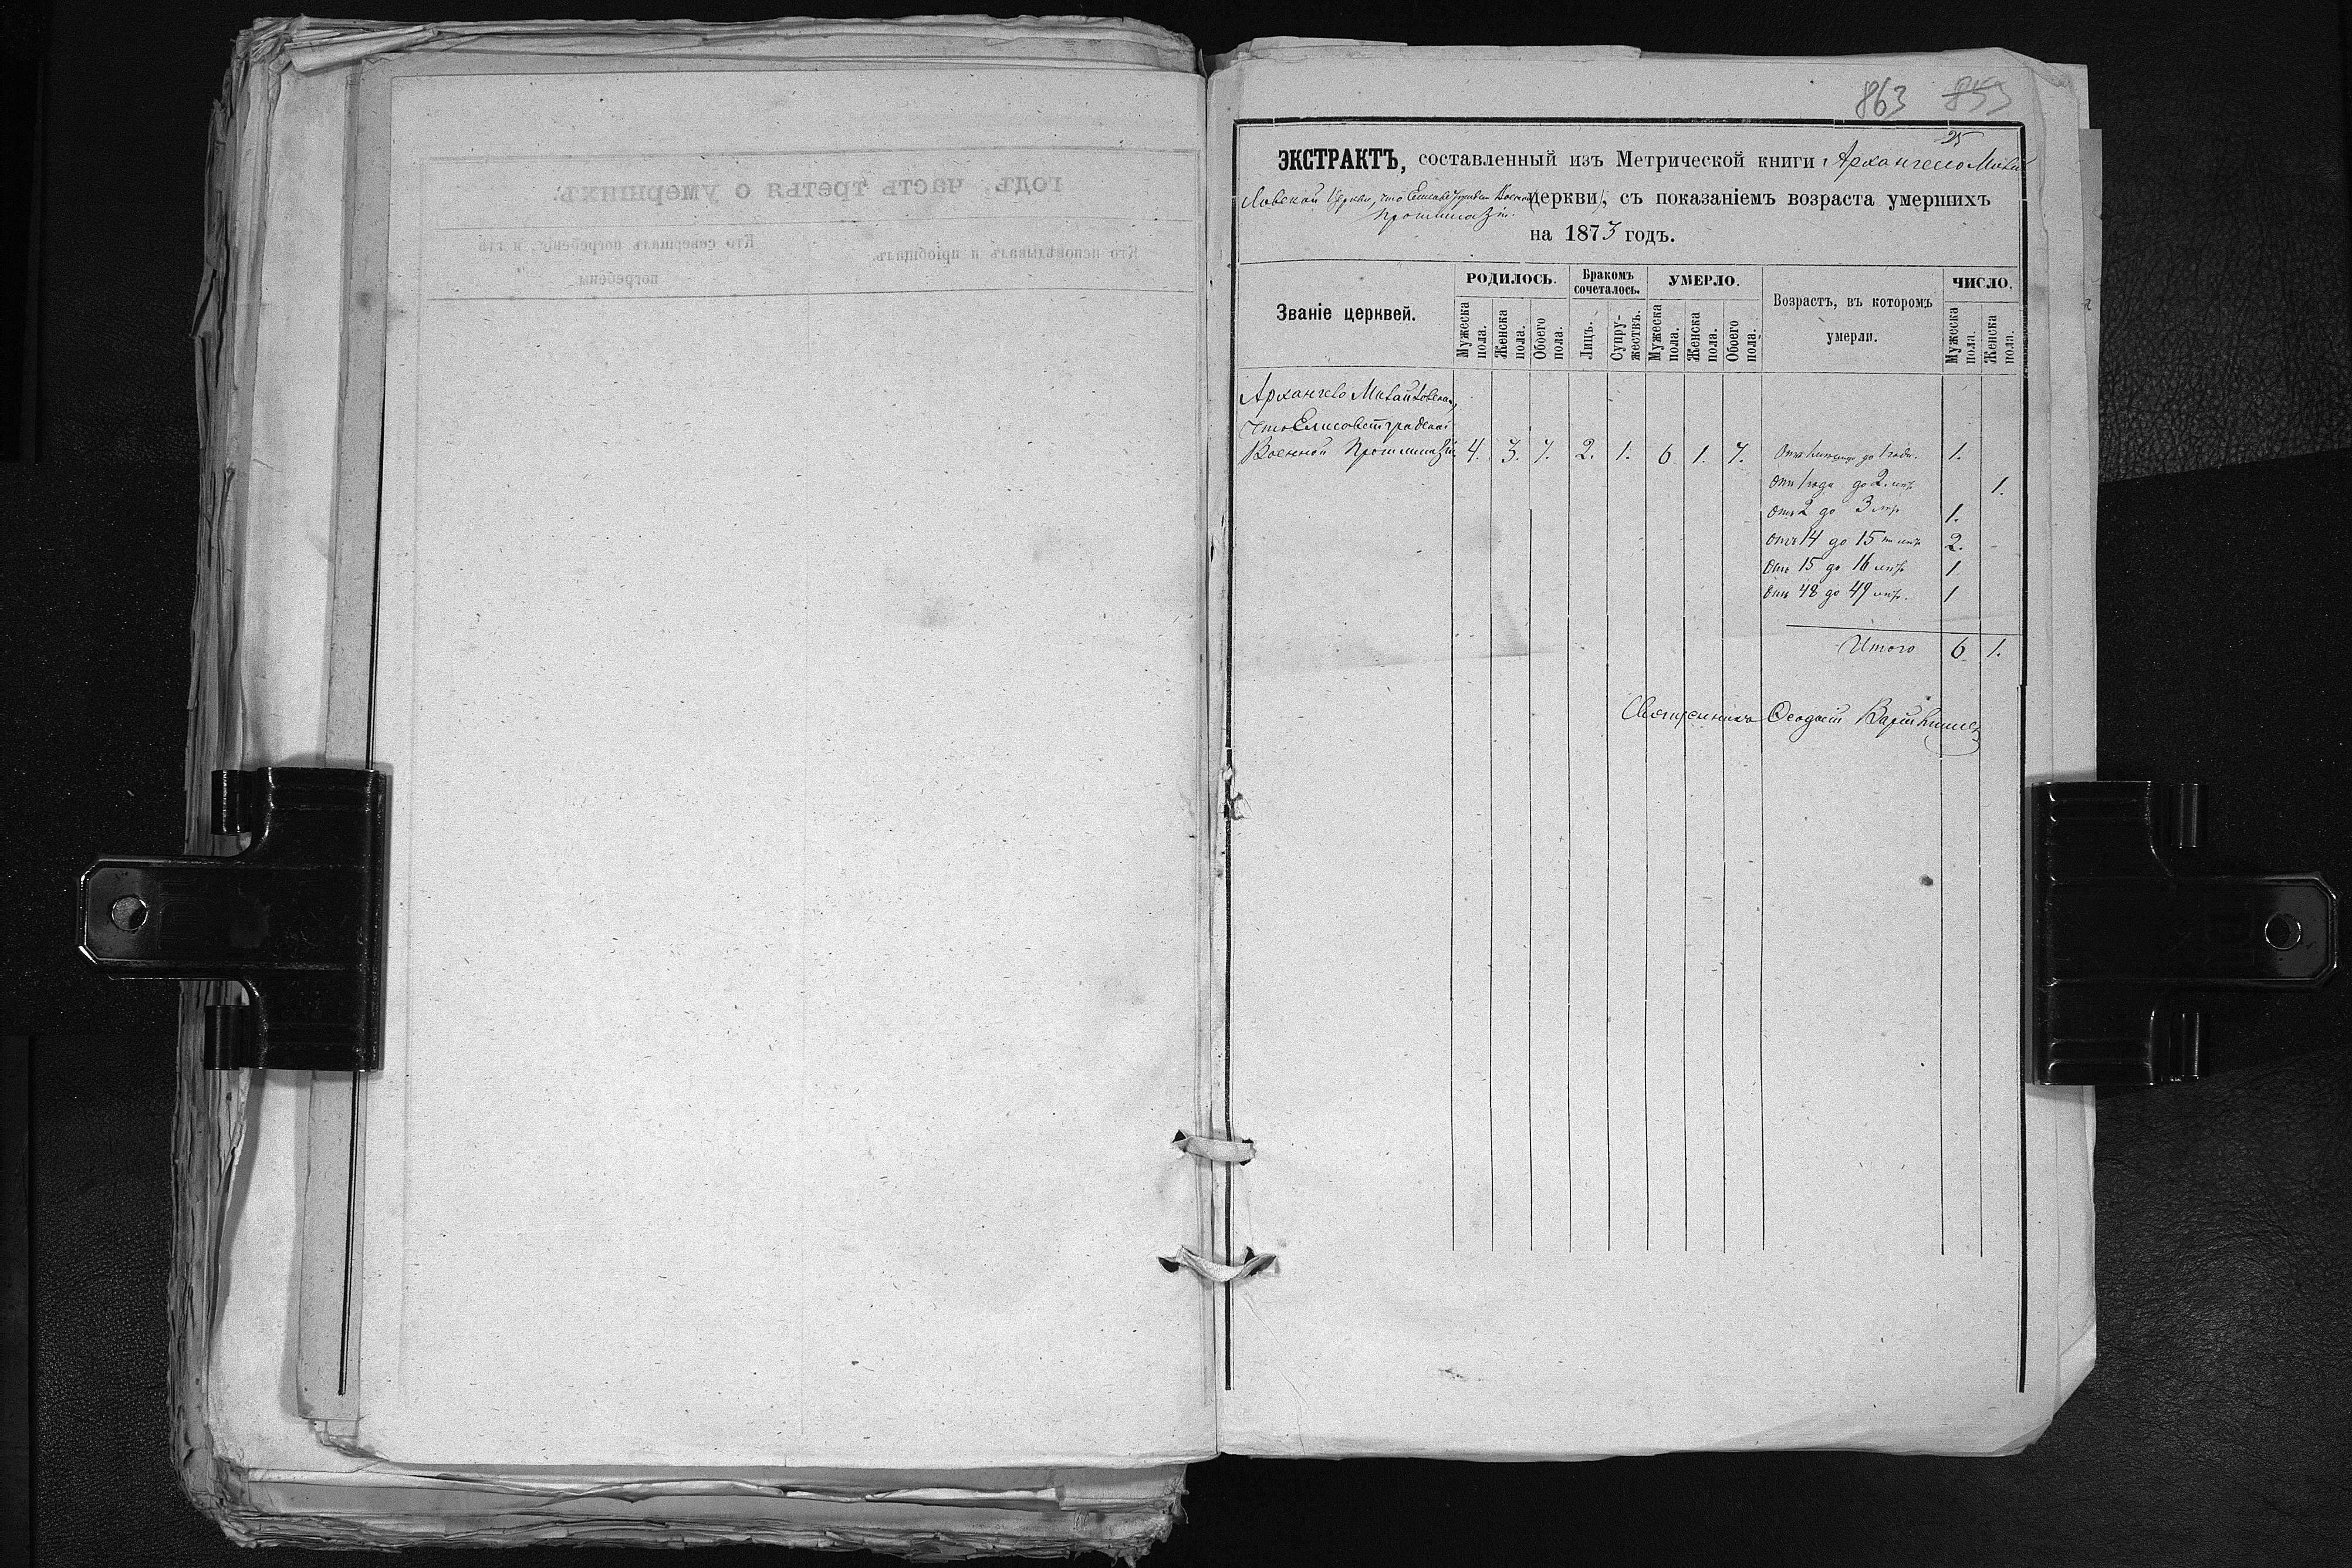 863 853
25
ЭКСТРАКТЪ, составленный изъ Метрической книги Архангело Михай
ловской Церкви, что Елисаветградск. Военной церкви, съ показаніемъ возраста умершихъ
Прогимназіи.
на 1873 годъ.
Званіе церквей.
РОДИЛОСЬ.
Мужеска пола.
Женска пола.
Обоего пола.
Бракомъ сочеталось.
Лицъ.
Супружествъ.
УМЕРЛО.
Мужеска пола.
Женска пола.
Обоего пола.
Возрастъ, въ которомъ
умерли.
ЧИСЛО.
Мужеска пола.
Женска пола.
Архангело Михайловская,
что Елисаветградской
Военной Прогимназіи. 4. 3. 7. 2. 1. 6. 1. 7. до 1 года. 1.
отъ 1 года до 2. лѣтъ 1.
отъ 2 до 3 лѣтъ 1.
отъ 14 до 15 лѣтъ 2.
отъ 15 до 16 лѣтъ 1.
отъ 48 до 49 лѣтъ. 1
Итого 6. 1.
Священникъ Ѳеодосій
годъ, часть третья о умершихъ.
Кто исповѣдывалъ и пріобщалъ.
Кто совершалъ погребеніе, и гдѣ
погребены